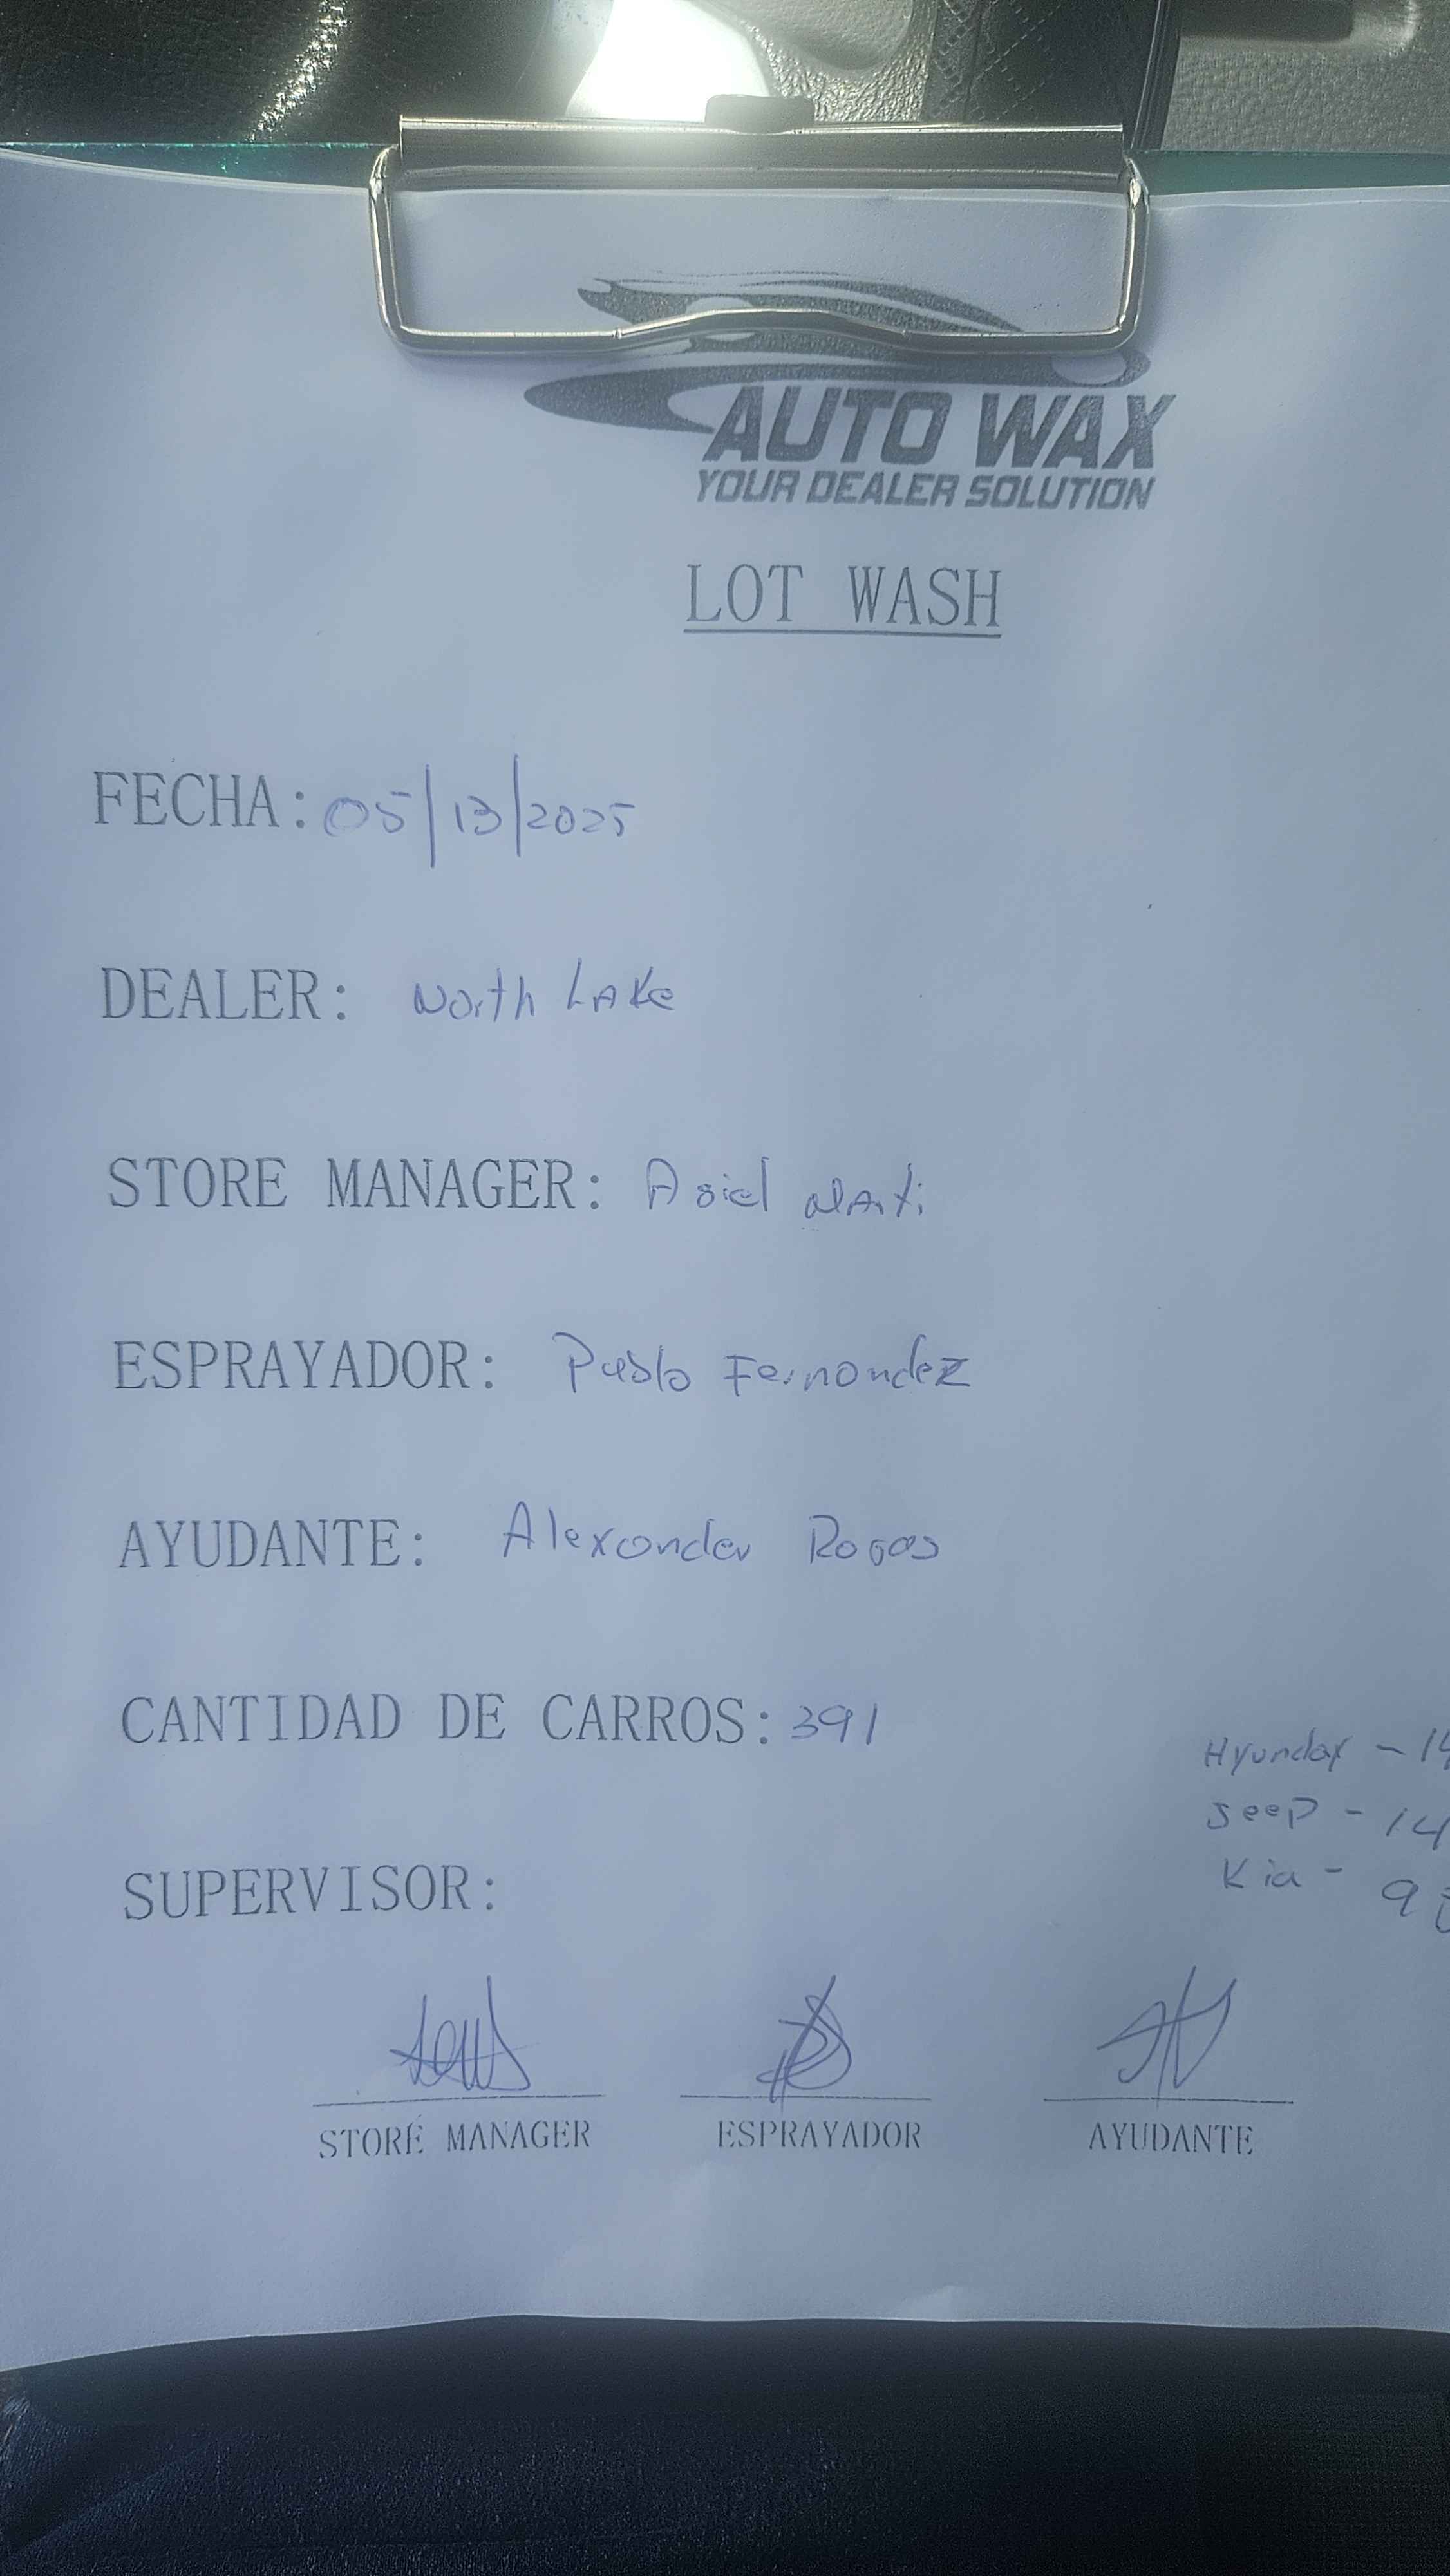 AUTO WAX
YOUR DEALER SOLUTION
LOT WASH
FECHA: 05/13/2025
DEALER: North Lake
STORE MANAGER: Asiel Marti
ESPRAYADOR: Pablo Fernandez
AYUDANTE: Alexander Rojas
CANTIDAD DE CARROS: 391
Hyunday - 14
Jeep - 14
Kia - 9
SUPERVISOR:
STORE MANAGER ESPRAYADOR AYUDANTE